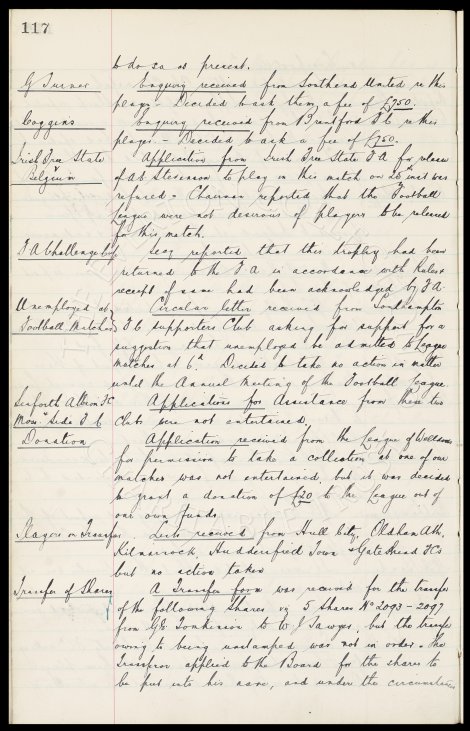 117
to do so as present.
G Turner
Enquiry received from Southend United re this
player - Decided to ask them a fee of £750.
Coggins
Enquiry received from Brentford F.C re this
player. - Decided to ask a fee of £750.
Irish Free State
Belgium
Application from Irish Free State F A for release
of A Stevenson to play in this match on 26th inst was
refused - Chairman reported that the Football
League were not desirous of players to be released
for this match.
F A Challenge Cup
Secy reported that this trophy had been
returned to the F A in accordance with Rules &
receipt of same had been acknowledged by F A
Unemployed at
Football Matches
Circular letter received from Southampton
F C Supporters Club asking for support for a
suggestion that unemployed be admitted to League
matches at 6d. Decided to take no action in matter
until the Annual Meeting of the Football League
Seaforth Albion F C
Moss Side F C
Applications for Assistance from these two
Clubs were not entertained.
Donation
Application received from the League of Welldoers
for permission to take a collection at one of our
matches was not entertained but it was decided
to grant a donation of £20 to the League out of
our own funds.
Players on Transfer
Lists received from Hull City, Oldham Ath,
Kilmarnock, Huddersfield Town & Gateshead FCs
but no action taken
Transfer of Shares
A Transfer form was received for the transfer
of the following shares viz 5 Shares No 2093 - 2097
from G E Tomkinson to W J Sawyer, but the transfer
owing to being unstamped was not in order - The
Transferor applied to the Board for the shares to
be put into his name, and under the circumstances